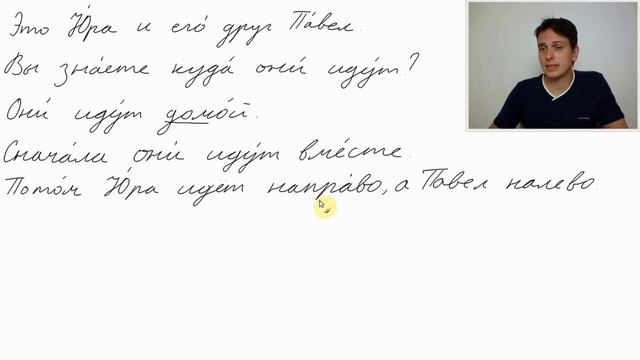 Э́то Ю́ра и его́ друг Па́вел.
Вы зна́ете куда́ они́ иду́т?
Они́ иду́т домо́й.
Снача́ла они́ иду́т вме́сте.
Пото́м Ю́ра идёт напра́во, а Павел налево.